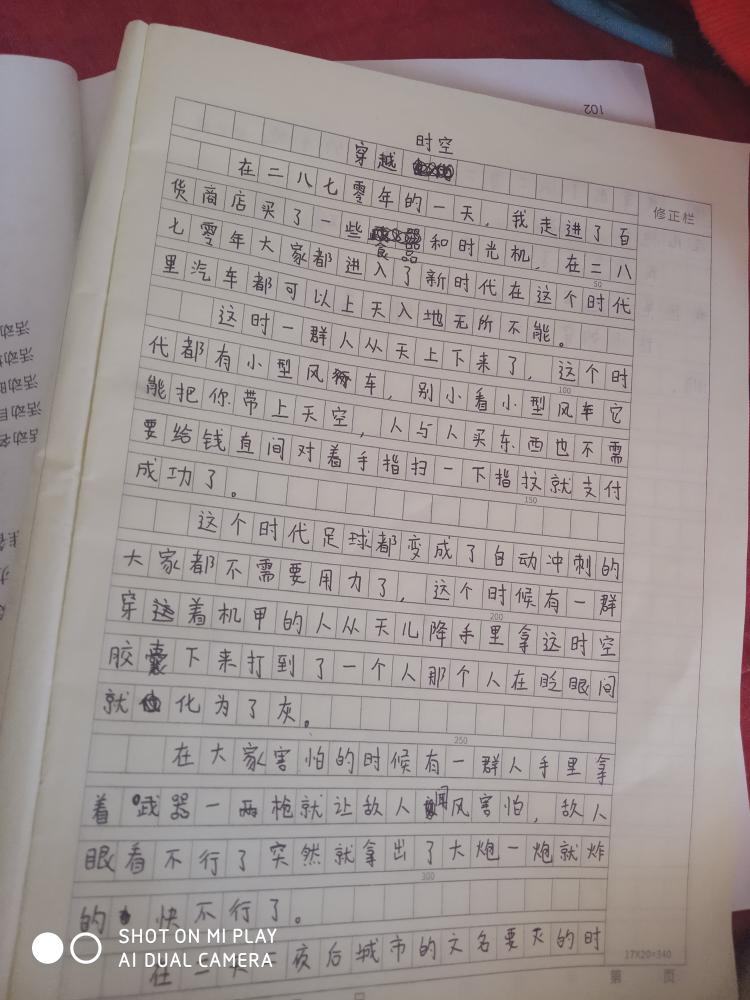 102
时空
穿越
修正栏
在二八七零年的一天，我走进了百
货商店买了一些食品和时光机，在二八
50
七零年大家都进入了新时代在这个时代
里汽车都可以上天入地无所不能。
这时一群人从天上下来了，这个时
100
代都有小型风车，别小看小型风车它
能把你带上天空，人与人买东西也不需
要给钱直间对着手指扫一下指纹就支付
150
成功了。
这个时代足球都变成了自动冲刺的
大家都不需要用力了，这个时候有一群
200
穿着机甲的人从天儿降手里拿这时空
胶囊下来打到了一个人那个人在眨眼间
就化为了灰。
250
在大家害怕的时候有一群人手里拿
着武器一两枪就让敌人闻风害怕，敌人
眼看不行了突然就拿出了大炮一炮就炸
300
的快不行了。
在一天夜后城市的文名要灭的时
17X20=340
第 页
活动
活动
活动
活动目
活动名
SHOT ON MI PLAY
AI DUAL CAMERA